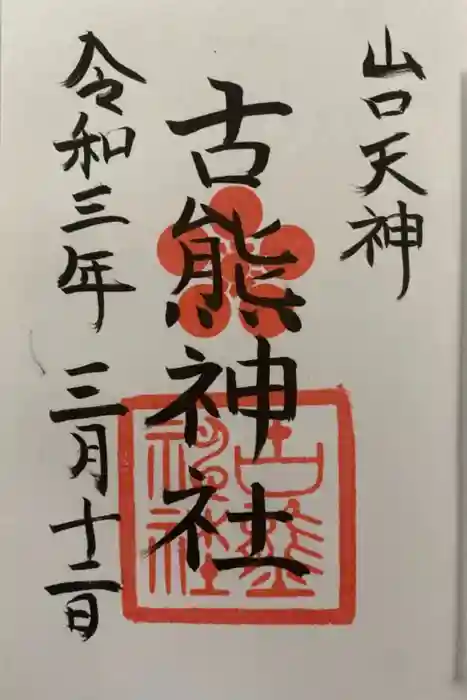 山口天神
古熊神社
令和三年三月十二日
古熊
神社